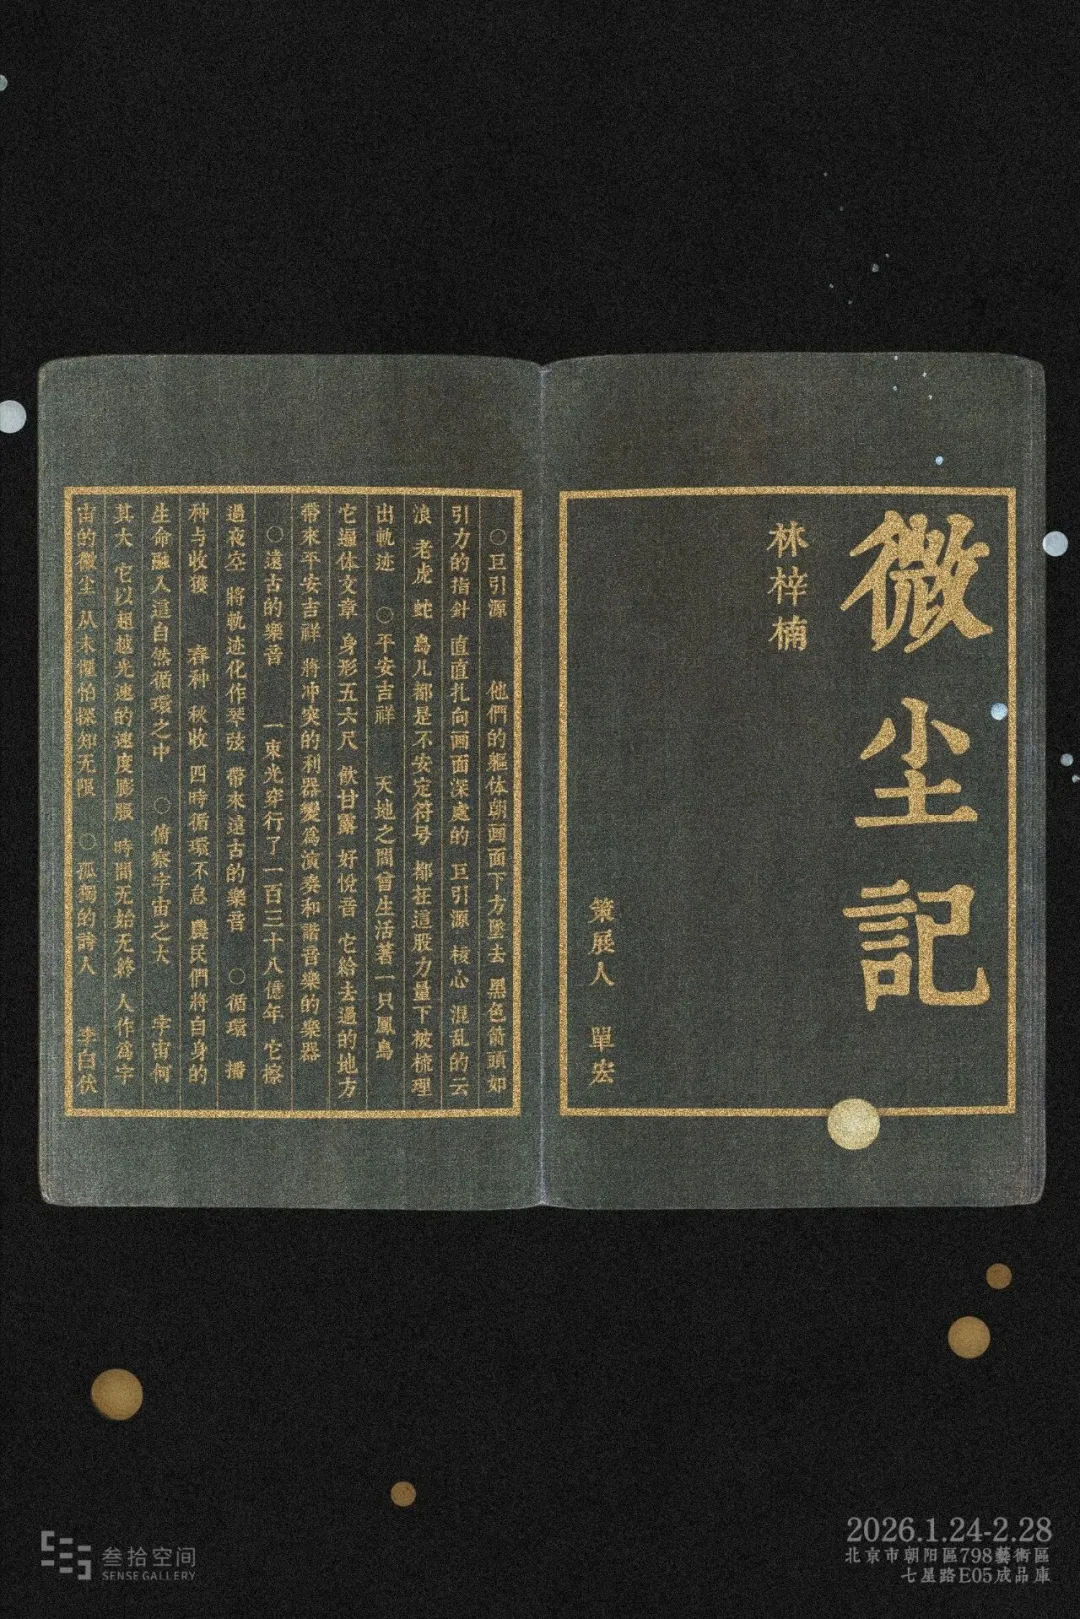 微尘記
林梓楠
策展人 單宏
〇巨引源 他們的軀体朝画面下方墜去 黑色箭頭如
引力的指針 直直扎向画面深處的 巨引源 核心 混乱的云
浪 老虎 蛇 鳥儿都是不安定符号 都在這股力量下被梳理
出軌迹 〇平安吉祥 天地之間曾生活著一只鳳鳥
它遍体文章 身形五六尺 飲甘露 好悅音 它給去過的地方
帶來平安吉祥 將冲突的利器變爲演奏和諧音樂的樂器
〇遠古的樂音 一束光穿行了一百三十八億年 它擦
過夜空 將軌迹化作琴弦 帶來遠古的樂音 〇循環 播
种与收獲 春种 秋收 四時循環不息 農民們將自身的
生命融入這自然循環之中 〇俯察宇宙之大 宇宙何
其大 它以超越光速的速度膨脹 時間无始无終 人作爲宇
宙的微尘 从未懼怕探知无限 〇孤獨的詩人 李白伏
叁拾空间
SENSE GALLERY
2026.1.24-2.28
北京市朝阳區798藝術區
七星路E05成品庫